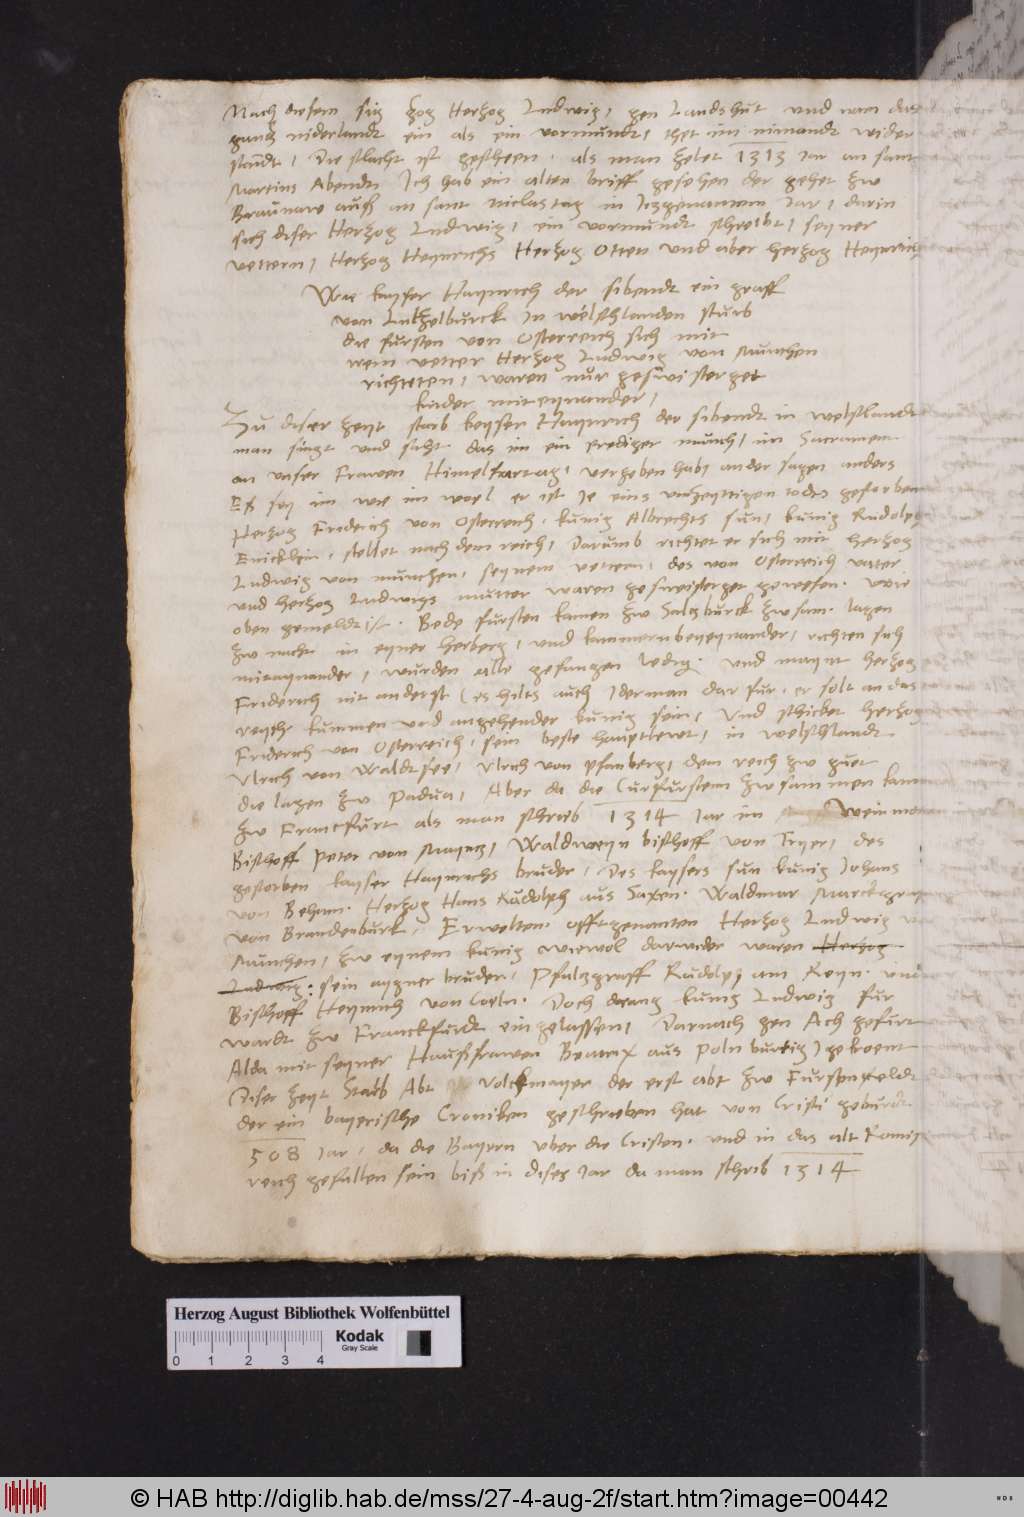 Nach diesem sig zog Hertzog Ludwig, gen Landshut und nam das
gantz niderlandt ein als ein vormundt, thet im nimandt wider
standt, Die slacht ist gescheen, als man zelet 1313 Jar an sant
Martins Abendn Ich hab ein alten briff gesehen der gehet zw
Braunaw auß an sant niclas tag in Jtzgenantem Jar, darin
sich diser Hertzog Ludwig, ein vormundt schreibt, seyner
vettern, Hertzog Heynrichs Hertzog Otten und aber hertzog Heynrich
Wie kayser Haynrich der sibendt ein graff
von Lutzelburck In welschlanden sturb
die fursten von Osterreich sich mit
vetter Hertzog Ludwig von Munchen
richteten, waren nur geswistergyet
kinder miteynander,
Zu diser zeyt starb keyser Haynrich der sibendt in welschlandt
man singt und sicht das im ein prediger munch, im Sacrament
an unser Frawen Himelfartag, vergeben hab, ander sagen anders
Eß sey im wie im woel er ist Je eins unzeyttigen todts gestorben
Hertzog Friderich von Osterreich, kunig Albrechts sun, kunig Rudolphs
Enicklein, stellet nach dem reich, Darumb richtet er sich mit hertzog
Ludwig von munchen, seynem vettern, des von Osterreich vater
und hertzog Ludwigs mutter waren geswistergyet gewesen. wie
oben gemeldt ist. Bede fursten kamen zw Saltzburck zwsam. lagen
zw nacht in eyner herberg, und kammern beyeynander, richten sich
miteynander, wurden alle gefangen ledig. und maynt hertzog
Friderich nit anderst (es hilts auch Iderman darfur, er solt an das
reych kummen und angehender kunig sein, Und schicket hertzog
Friderich von Osterreich, sein beste hauptlewt, in welschlandt
Ulrich von Waldtsee, Ulrich von pfanberg, dem reich zw guet
die lagen zw Padua, Aber da die Curfursten zwsammen kamen
zw Francfurt als man schrieb 1314 Jar im Weinmon
Bischoff peter von Mayntz, Waldweyn bischoff von Tryer, des
gestorben kayser Haynrichs bruder, Des kaysers sun kunig Johans
von Beham. Hertzog Hans Rudolph aus Saxen. Waldmar Marckgraff
von Brandenburk, Erwelten offtgenanten Hertzog Ludwig von
Munchen, zw eynem kunig wiewol darwider waren Hertzog
Ludwig: sein aygner bruder, Pfaltzgraff Rudolph am Reyn. und
Bischoff Heynrich von Coeln. Doch drang kunig Ludwig fur
wardt zw Franckfurdt eingelassen, Darnach gen Ach gefurt
Alda mit seyner Haußfrawen Beatrix aus Poln burtig, gekroent
Diser zeyt starb Abt Volckmayer der erst abt zw Furstenveldt
der ein bayerische Croniken geschrieben hat von Cristi geburdt
508 Jar, da die Bayern uber die Cristen, und in das alt Romisch
reich gefallen sein biß in dises Jar da man schrib 1314
Herzog August Bibliothek Wolfenbüttel
Kodak
Gray Scale
0 1 2 3 4
© HAB http://diglib.hab.de/mss/27-4-aug-2f/start.htm?image=00442